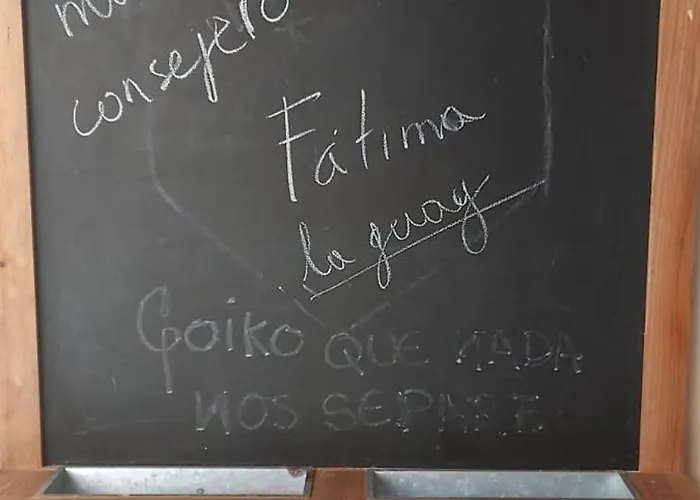 consejero
Fátima
la guay
Goiko QUE NADA
NOS SEPARE